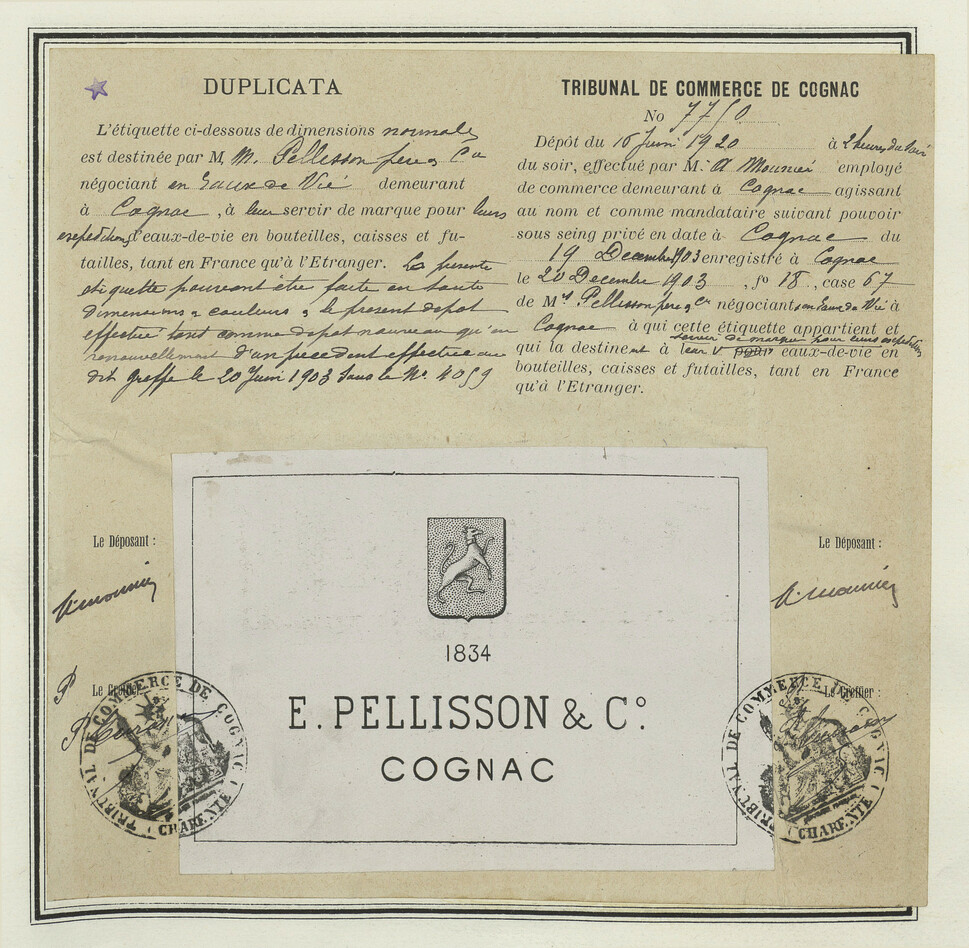 DUPLICATA
L'étiquette ci-dessous de dimensions normales
est destinée par M, M. Pellisson père & Cie
négociant en Eaux de Vie demeurant
à Cognac, à leur servir de marque pour leurs
expéditions d'eaux-de-vie en bouteilles, caisses et fu-
tailles, tant en France qu'à l'Etranger. La présente
étiquette pourront être faite en toute
dimensions & couleurs, le présent dépot
effectué tant comme dépot nouveau qu'en
renouvellement d'un précédent effectué au
dit greffe le 20 Juin 1903 sous le No. 4059
TRIBUNAL DE COMMERCE DE COGNAC
No 7750
Dépôt du 16 Juin 1920 à 2 heures du soir
du soir, effectué par M. A Mounier employé
de commerce demeurant à Cognac agissant
au nom et comme mandataire suivant pouvoir
sous seing privé en date à Cognac du
19 Décembre 1903 enregistré à Cognac
le 20 Decembre 1903, fo 18, case 67
de Mrs Pellisson père & Cie négociants en Eaux de Vie à
Cognac à qui cette étiquette appartient et
qui la destinent à leur servir de marque pour leurs expéditions pour eaux-de-vie en
bouteilles, caisses et futailles, tant en France
qu'à l'Etranger.
Le Déposant :
A. Mounier
Le Greffier :
TRIBUNAL DE COMMERCE DE COGNAC
CHARENTE
1834
E. PELLISSON & Co.
COGNAC
Le Déposant :
A. Mounier
Le Greffier :
TRIBUNAL DE COMMERCE DE COGNAC
CHARENTE